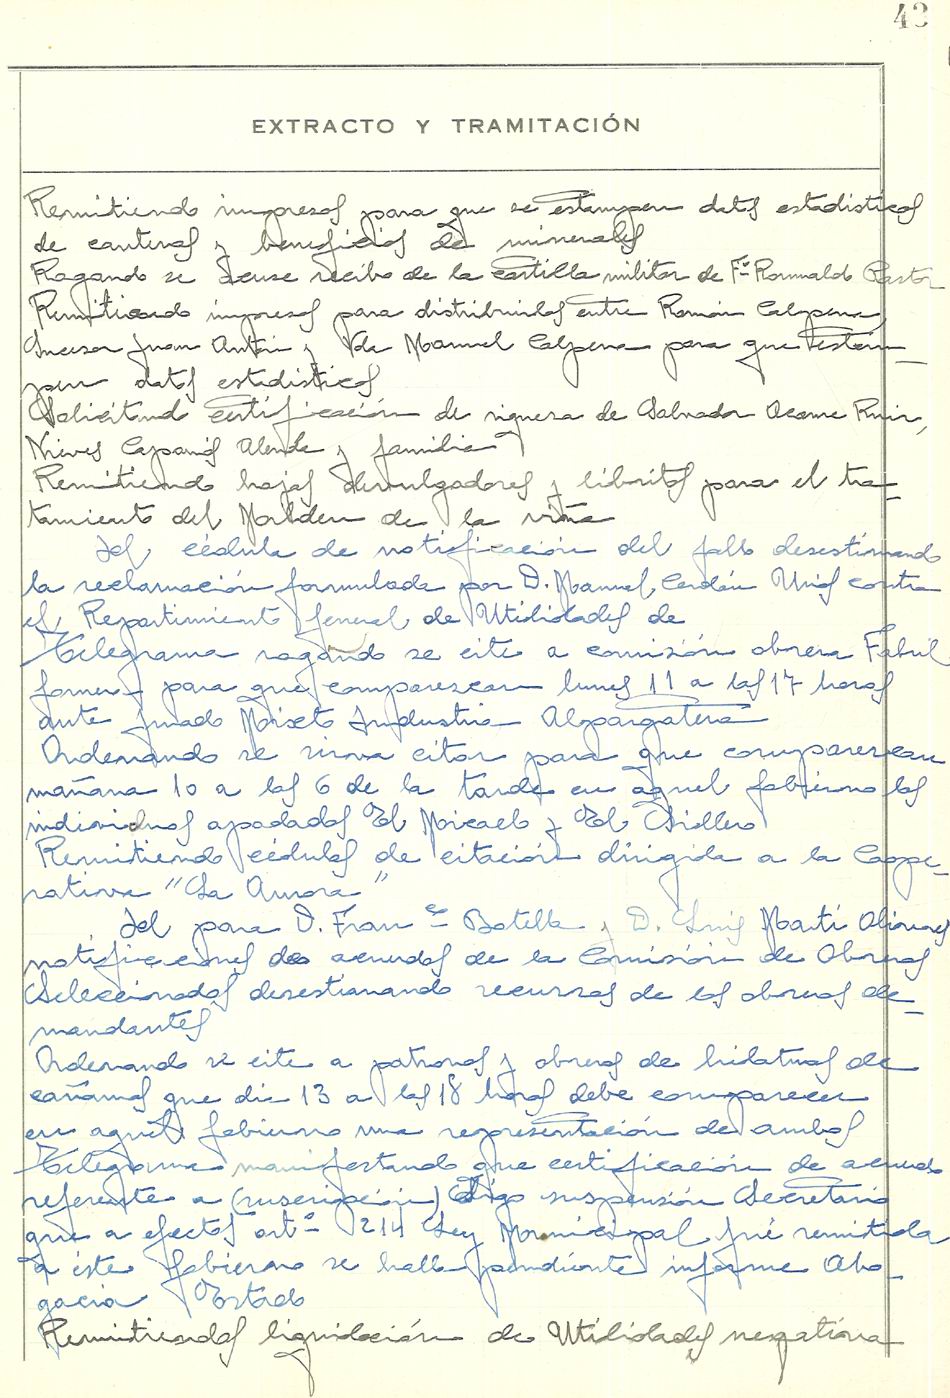 43
EXTRACTO Y TRAMITACIÓN
Remitiendo impresos para que se estampen datos estadisticos
de canteras y beneficios de minerales
Rogando se acuse recibo de la cartilla militar de Fº Romualdo Pastor
Remitiendo impresos para distribuirlos entre Román Calpena
Sucesor Juan Antón y Vda Manuel Calpena para que estam-
pen datos estadisticos
Solicitando certificación de riqueza de Salvador Azame Ruiz,
Nieves Capanis Alenda y familia
Remitiendo hojas divulgadores y libritos para el tra-
tamiento del Mildeu de la viña
Id cédula de notificación del fallo desestimando
la reclamación formulada por D. Manuel Cerdán contra
el Repartimiento General de Utilidades de
Telegrama rogando se cite a comisión obrera Fabril
para que comparezcan lunes 11 a las 17 horas
ante jurado Mixto Industria Alpargatera
Ordenando se sirva citar para que comparezcan
mañana 10 a las 6 de la tarde en aquel Gobierno los
individuos apodados El Micaelo y El Sillero
Remitiendo cédulas de citación dirigida a la Coope-
rativa "La Aurora"
Id para D. Franco Botella y D. Luis Martí
notificaciones de acuerdos de la Comisión de Obreros
Seleccionados desestimando recursos de los obreros de-
mandantes
Ordenando se cite a patronos y obreros de hilaturas de
cañamos que dia 13 a las 18 horas debe comparecer
en aquel Gobierno una representación de ambos
Telegrama manifestando que certificación de acuerdo
referente a (suscripción) digo suspensión Secretario
que a efectos artº 214 Ley Municipal fué remitida
a éste Gobierno se halla pendiente informe Abo-
gacia Estado
Remitiendo liquidación de Utilidades negativa